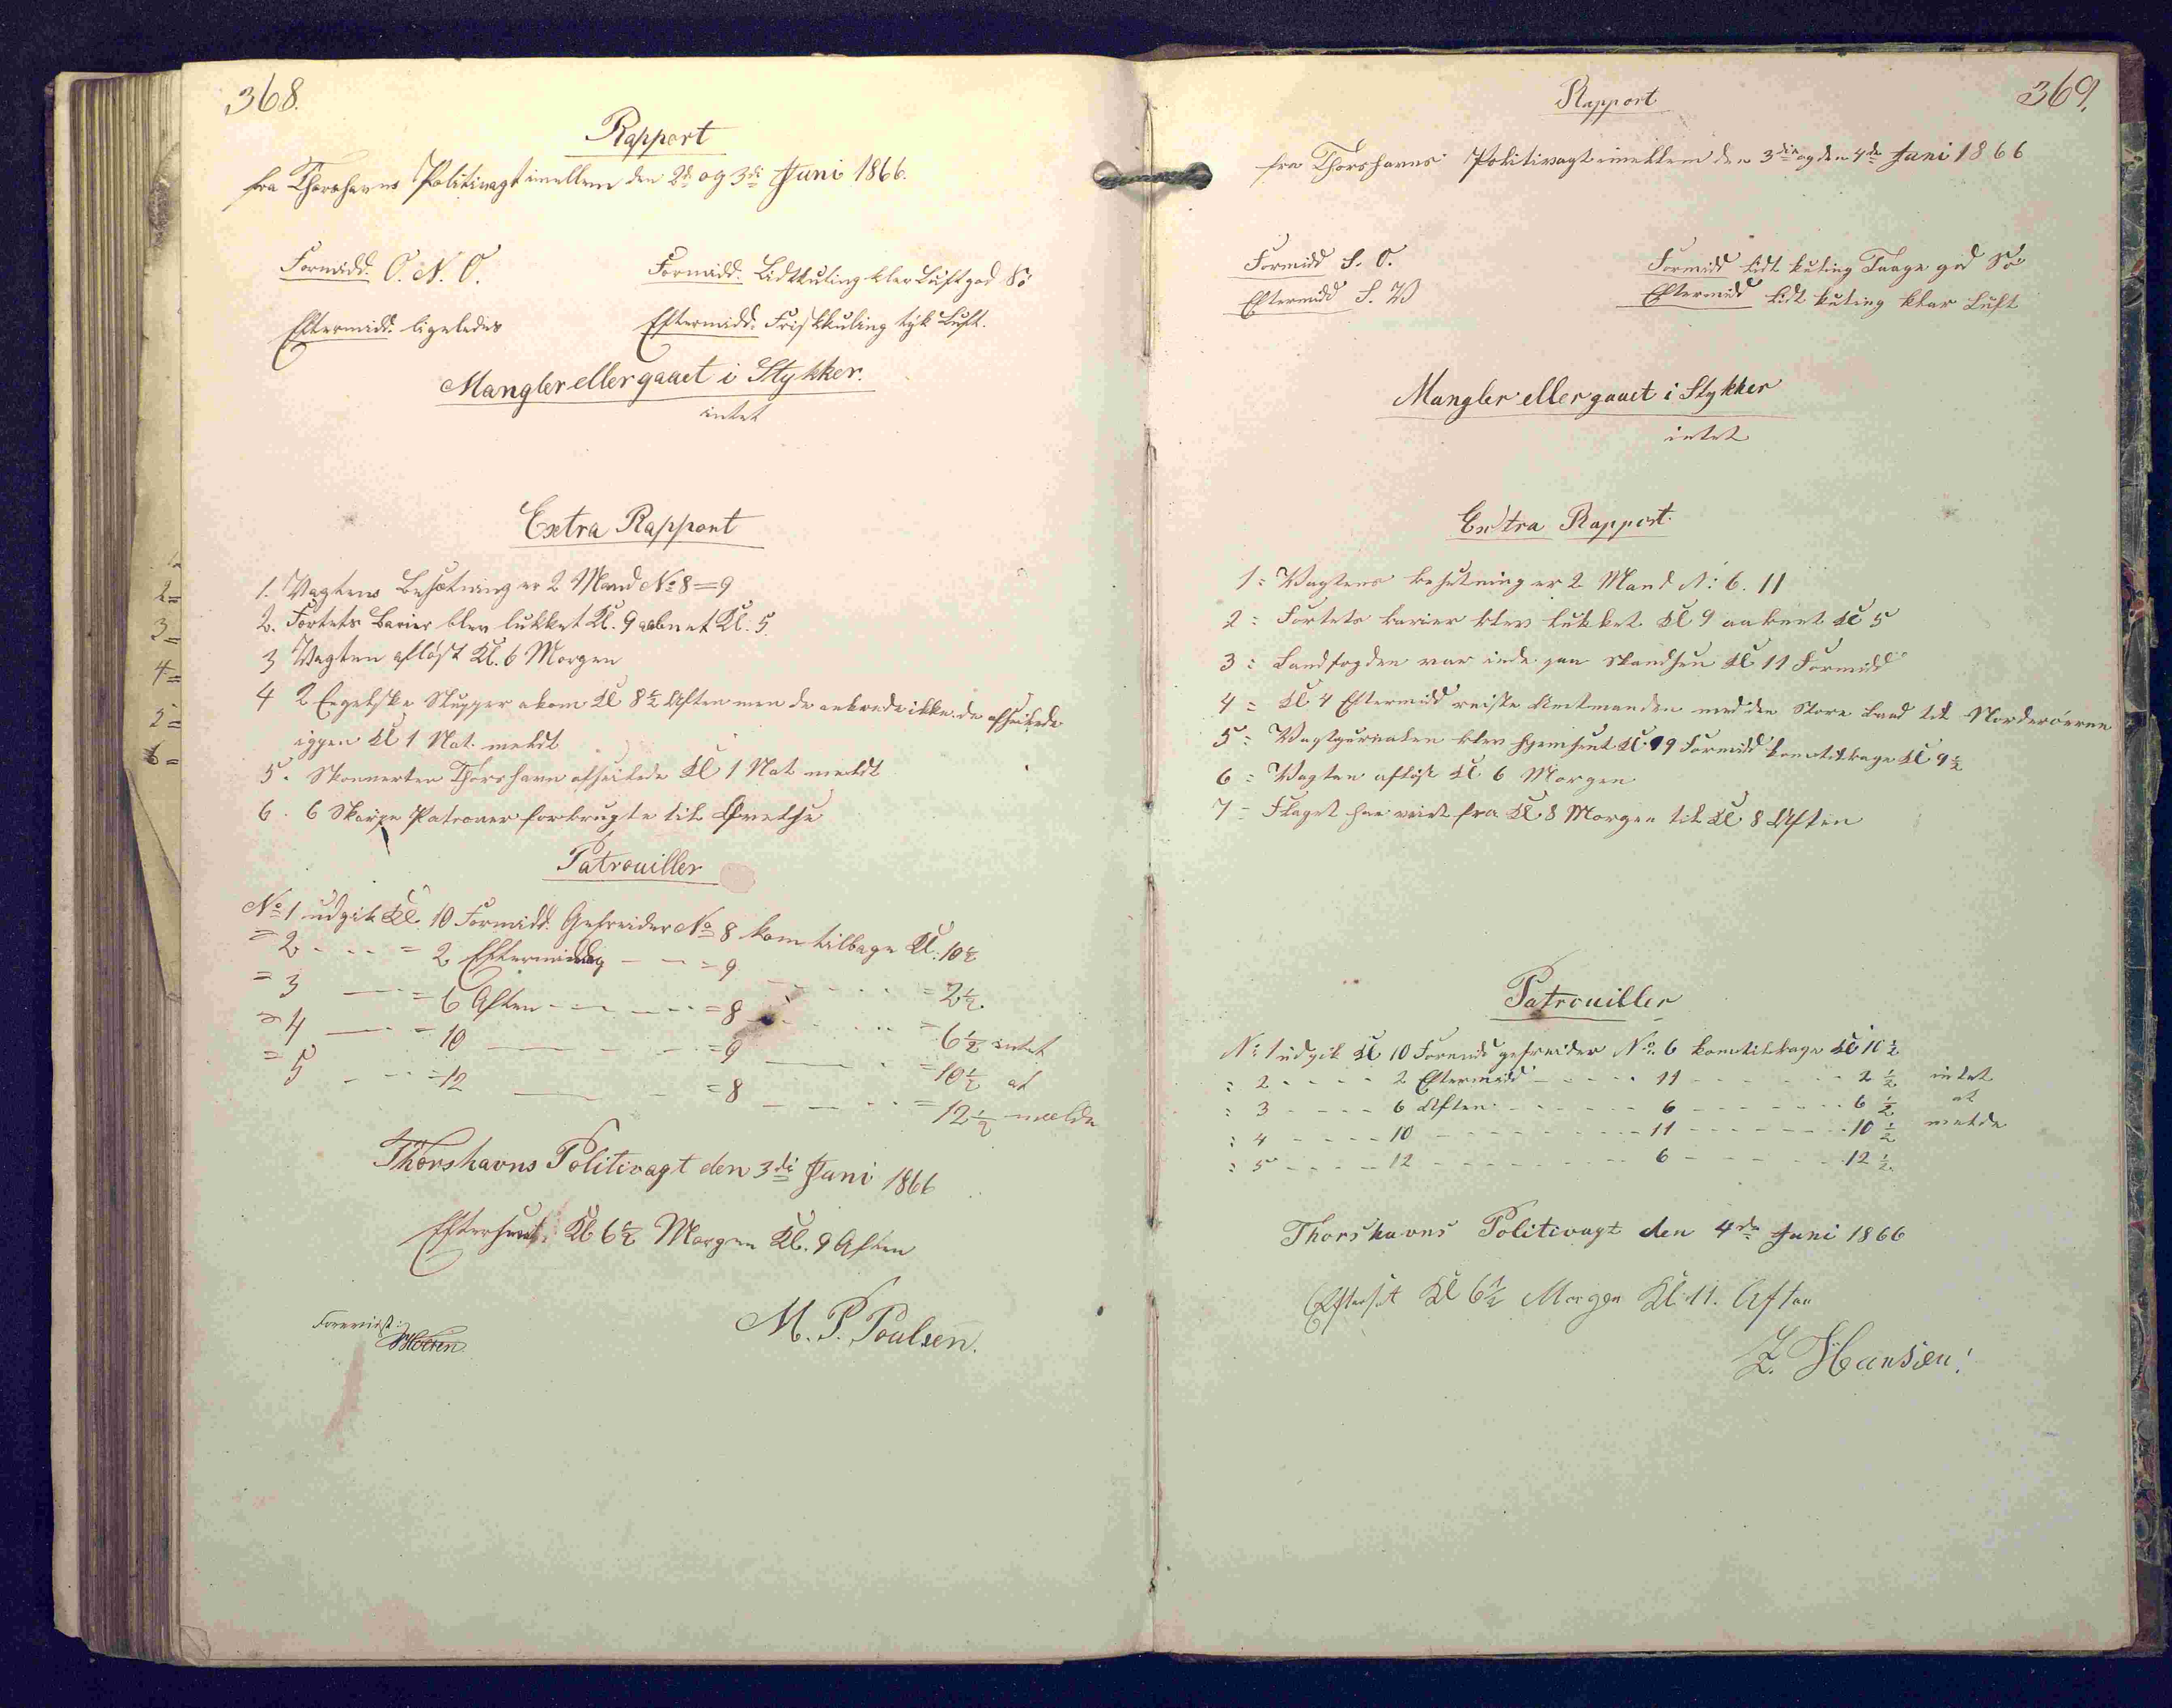 368.
Rapport
fra Thorshavns Politivagt imellem den 2d og 3di Juni 1866.
Formidd. O. N. O.
Formidd. Lidt Kuling klar Luft god Sö
Eftermidd. ligeledes
Eftermidd. Frisk kuling tyk Luft.
Mangler eller gaaet i Stykker.
intet
Extra Rapport
1. Vagtens Besætning er 2 Mand No 8 = 9
2. Fortets Barier blev lukket Kl. 9 aabnet Kl. 5.
3 Vagten aflöst Kl. 6 Morgen
4 2 Engelske Slupper akom Kl 8½ Aften men de ankrede ikke. de afseilede
iggen Kl 1 Nat. meldt
5. Skonnerten Thorshavn afseilede Kl 1 Nat meldt
6. 6 Skarpe Patroner forbrugte til Övelse
Patrouiller
No 1 udgik Kl. 10 Formidd. Gefreider No 8 kom tilbage Kl. 10½
= 2 - - - = 2 Eftermiddag - - = 9 - - - - = 2½
= 3 - - = 6 Aften - - - - = 8 - - - - = 6½ intet
= 4 - - = 10 - - - = 9 - - - = 10½ at
= 5 - - = 12 - - - = 8 - - - - = 12½ melde
Thorshavns Politivagt den 3di Juni 1866
Efterseet. Kl 6½ Morgen Kl. 9 Aften
M. P. Poulsen.
369.
Rapport
fra Thorshavns Politivagt imellem den 3die og den 4de Juni 1866
Formidd S. O.
Formidd lidt kuling Taage god Sö
Eftermidd S. V
Eftermidd lidt kuling klar Luft
Mangler eller gaaet i Stykker
intet
Extra Rapport.
1 = Vagtens besetning er 2 Mand N: 6. 11
2 = Fortets barier blev lukket Kl 9 aabent Kl 5
3 = Landfogden var inde paa Skandsen Kl 11 Formidd
4 = Kl 4 Eftermidd reiste Amtmanden med den Store Baad til Norderöerne
5 = Vagtgurnalen blev hjemsent Kl 9 Formidd kom tilbage Kl 9½
6 = Vagten aflöst Kl 6 Morgen
7 = Flaget har veiet fra Kl 8 Morgen til Kl 8 Aften
Patrouiller
No 1 udgik Kl 10 Formidd gefreider No 6 kom tilbage Kl 10½
: 2 - - - - 2 Eftermidd - - - - 11 - - - - - 2½ intet
: 3 - - - - 6 Aften - - - - - 6 - - - - - 6½ at
: 4 - - - - 10 - - - - - - 11 - - - - - 10½ melde
: 5 - - - - 12 - - - - - - 6 - - - - - 12½
Thorshavns Politivagt den 4de Juni 1866
Efterset Kl 6½ Morgen Kl. 11. Aften
Z. Hansen.